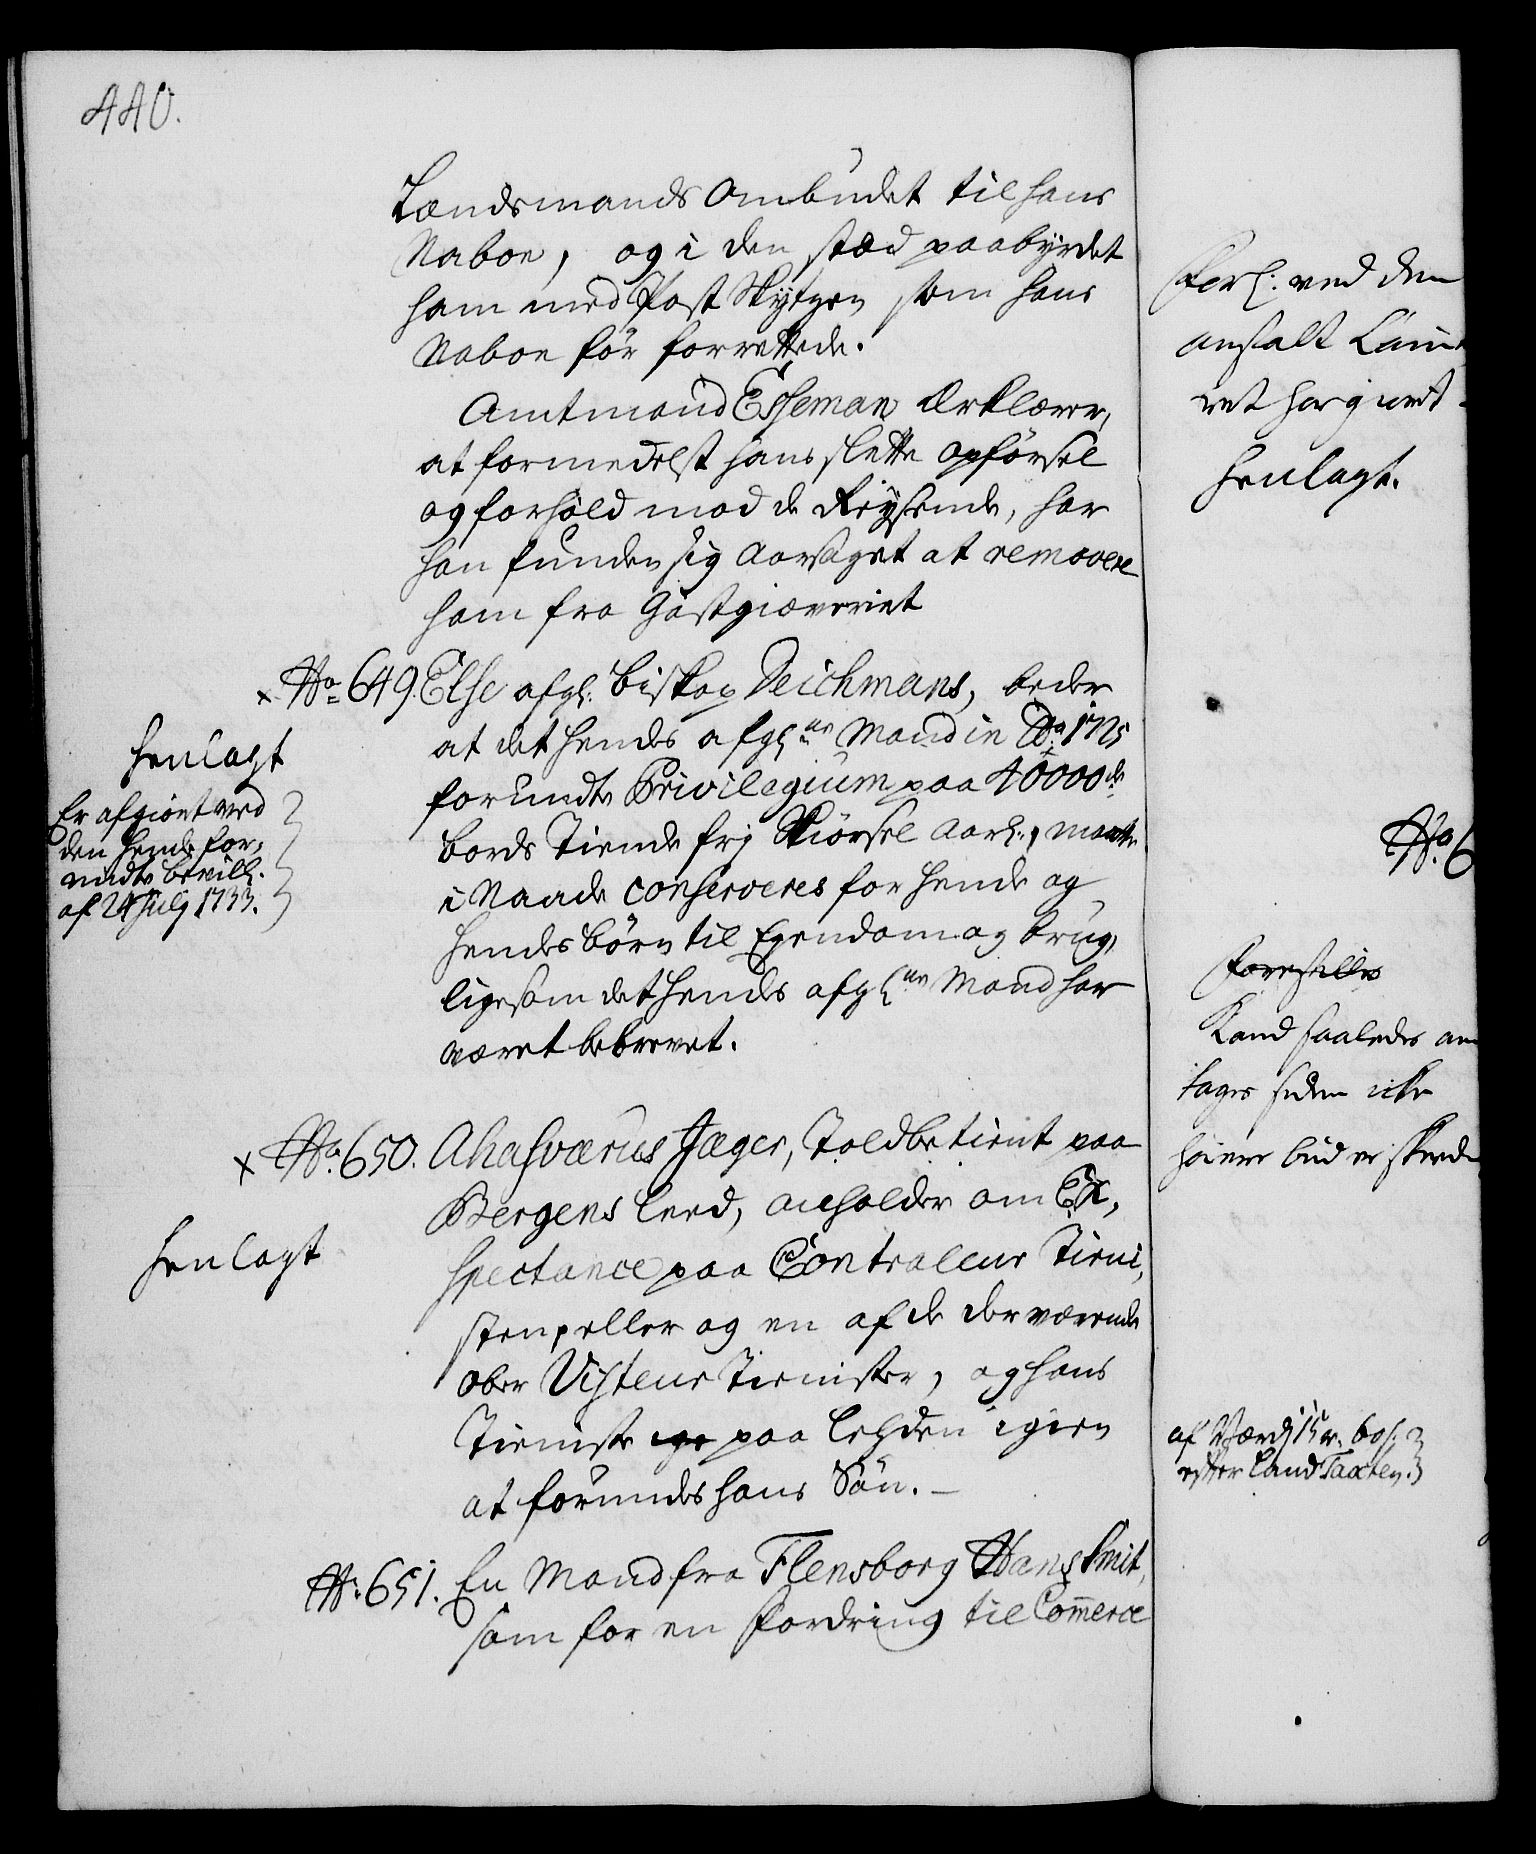 440.
Lændsmands Ombudet til hans
Naboe, og i den stæd paabyrdet
ham med Post Skytzen som hans
Naboe før forrettede.
Amtmand Esseman Erklærer,
at formedelst hans slette opførsel
og forhold mod de Reysende, har
han funden sig aarsaget at removere
ham fra Gæstgiæveriet
x No 649. Else afgl: Biskop Deichmans, beder
at det hendes afgl:ne Mand in Ao 1725
forundte Privilegium paa 40000de
bords Tiende frj Skiørsel aarl:, maatte
i Naade conserveres for hende og
hendes børn til Eyendom og brug,
ligesom det hendes afgl:ne Mand har
været bebrevet.
henlagt
Er afgiort ved
den hende for-
undte bevill:
af 24 Julj 1733.
x No 650. Ahasværus Jæger, Toldbetient paa
Bergens leed, anholder om Ex-
spectance paa Controlleur Tieni-
sten, eller og en af de derværende
ober Visiteur Tienister, og hans
Tieniste paa Lehden igien
at forundes hans Søn.
henlagt
No 651. En Mand fra Flensborg Hans Smit,
som for en fordring til Commerce
ved den
anstalt Cam
ret har giort
henlagt.
No 6
Forestilles
Kand saaledes an
tages siden icke
høiere bud er skeed
af Værdj 15 r. 60 s.
efter Land Taxten.